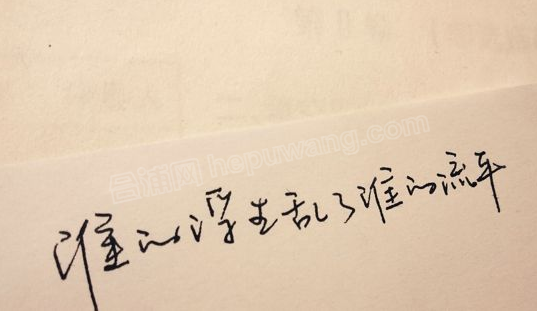 谁的浮生乱了谁的流年
合谱网 hepuwang.com